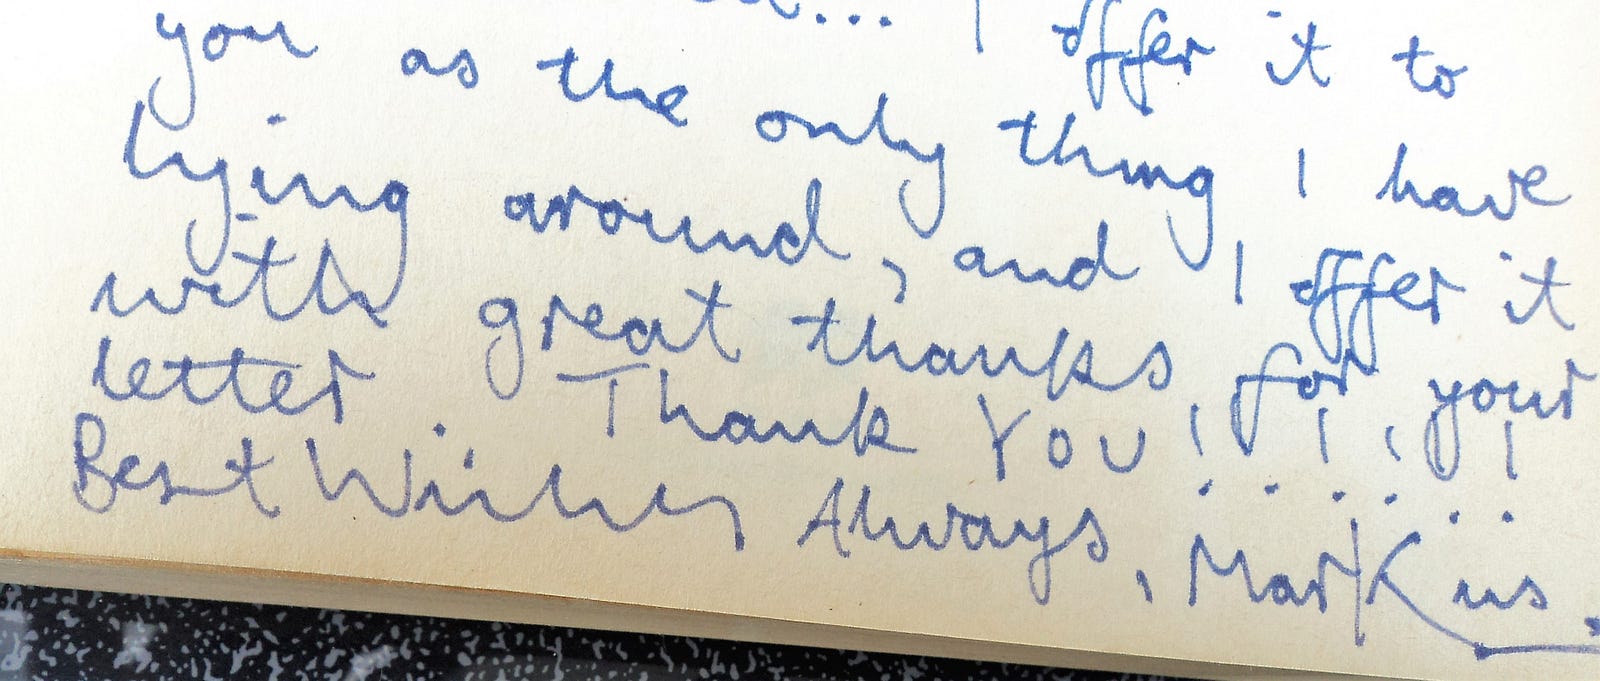 ... I offer it to
you as the only thing I have
lying around, and I offer it
with great thanks, for your
letter Thank You!!!!!!
Best Wishes Always, Markus.